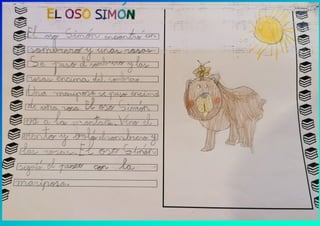 EL OSO SIMÓN
El oso Simón encontró un
sombrero y unas rosas.
Se puso el sombrero y las
rosas encima del sombrero.
Una mariposa se puso encima
de una rosa. El oso Simón
va a la montaña. Vino el
viento y voló el sombrero y
las rosas. El oso Simón
siguió el paseo con la
mariposa.